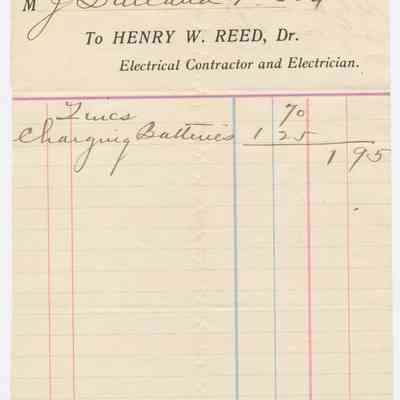 M J
To HENRY W. REED, Dr.
Electrical Contractor and Electrician.
Zincs 70
Charging Batteries 1 25
1 95